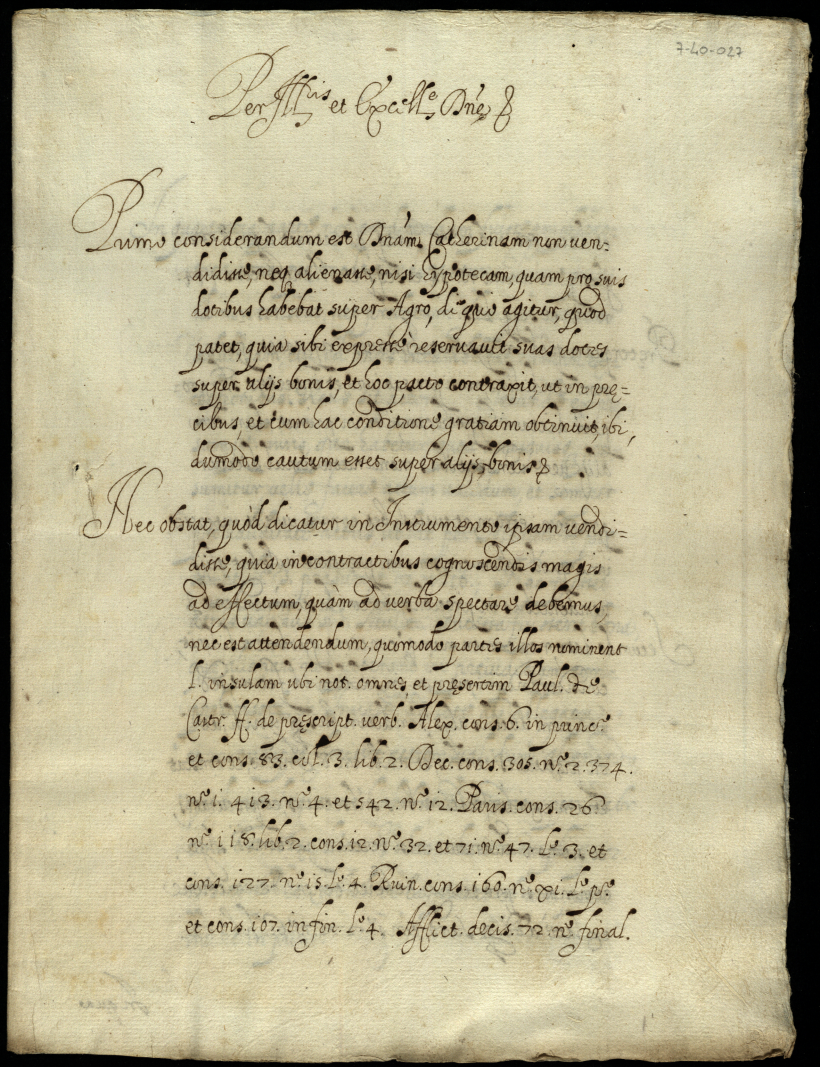 7-40-027
Per Ill.ris et Exc.lle Dne
Primo considerandum est Dnam Catherinam non ven=
didisse, neq alienasse, nisi hypotecam, quam pro suis
dotibus habebat super Agro, di quo agitur, quod
patet, quia sibi expresse reservavit suas dotes
super alijs bonis, et hoc pacto contraxit, ut in prę=
cibus, et cum hac conditione gratiam obtinuit, ibi,
dumodo cautum esset super alijs bonis
Nec obstat, quòd dicatur in Instrumento ipsam vendi=
disse, quia in contractibus cognoscendis magis
ad effectum, quàm ad verba spectare debemus,
nec est attendendum, quomodo partes illos nominent
l. insulam ubi not. omnes, et pręsertim Paul. de
Castr. ff. de pręscript. verb. Alex. cons. 6. in princ.º
et cons. 83. col. 3. lib. 2. Dec. cons. 305. nº. 2. 374.
nº. 1. 413. nº. 4. et 542. nº. 12. Paris. cons. 26
nº. 118. lib. 2. cons. 12. nº. 32. et 71. nº. 47. lº. 3. et
cons. 127. nº. 15. lº. 4. Ruin. cons. 160. nº. xi. lº. pº.
et cons. 107. in fin. lº. 4. Afflict. decis. 72. nº. final.